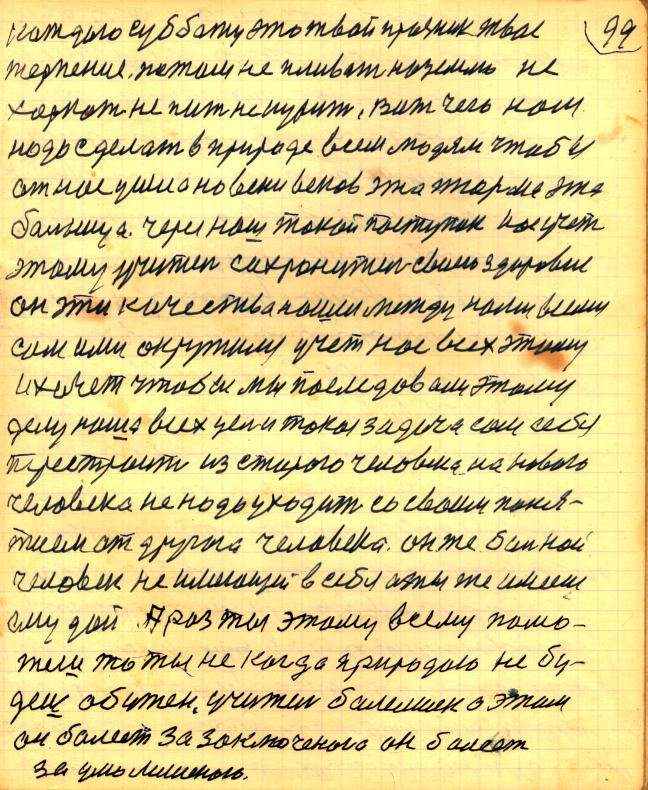 каждого субботу это твой празник твое
99
терпение. потом не пливат на землю не
харкат не пит не курит. Вот чего нам
надо сделат в природе всем людям чтобы
от нас ушла на веки веков эта тюрма эта
балница. через наш такой поступок нас учет
этому учител сахранител своего здоровие
он эти качества нашли между нами всеми
сам ими окружил учет нас всех этому
и хочет чтобы мы последовали этому
делу наша всех цел и такая задача сам себя
перестроит из старого человека на нового
человека не надо уходит со своем поня-
тием от другога человека. он же балной
человек не имеющей в себя а ты же имееш
ему дай. А раз ты этому всему помо-
жеш то ты некогда природаю не бу-
деш обижен. учител балелшек о этом
он балеет за заключеного он балеет
за умолишеного.